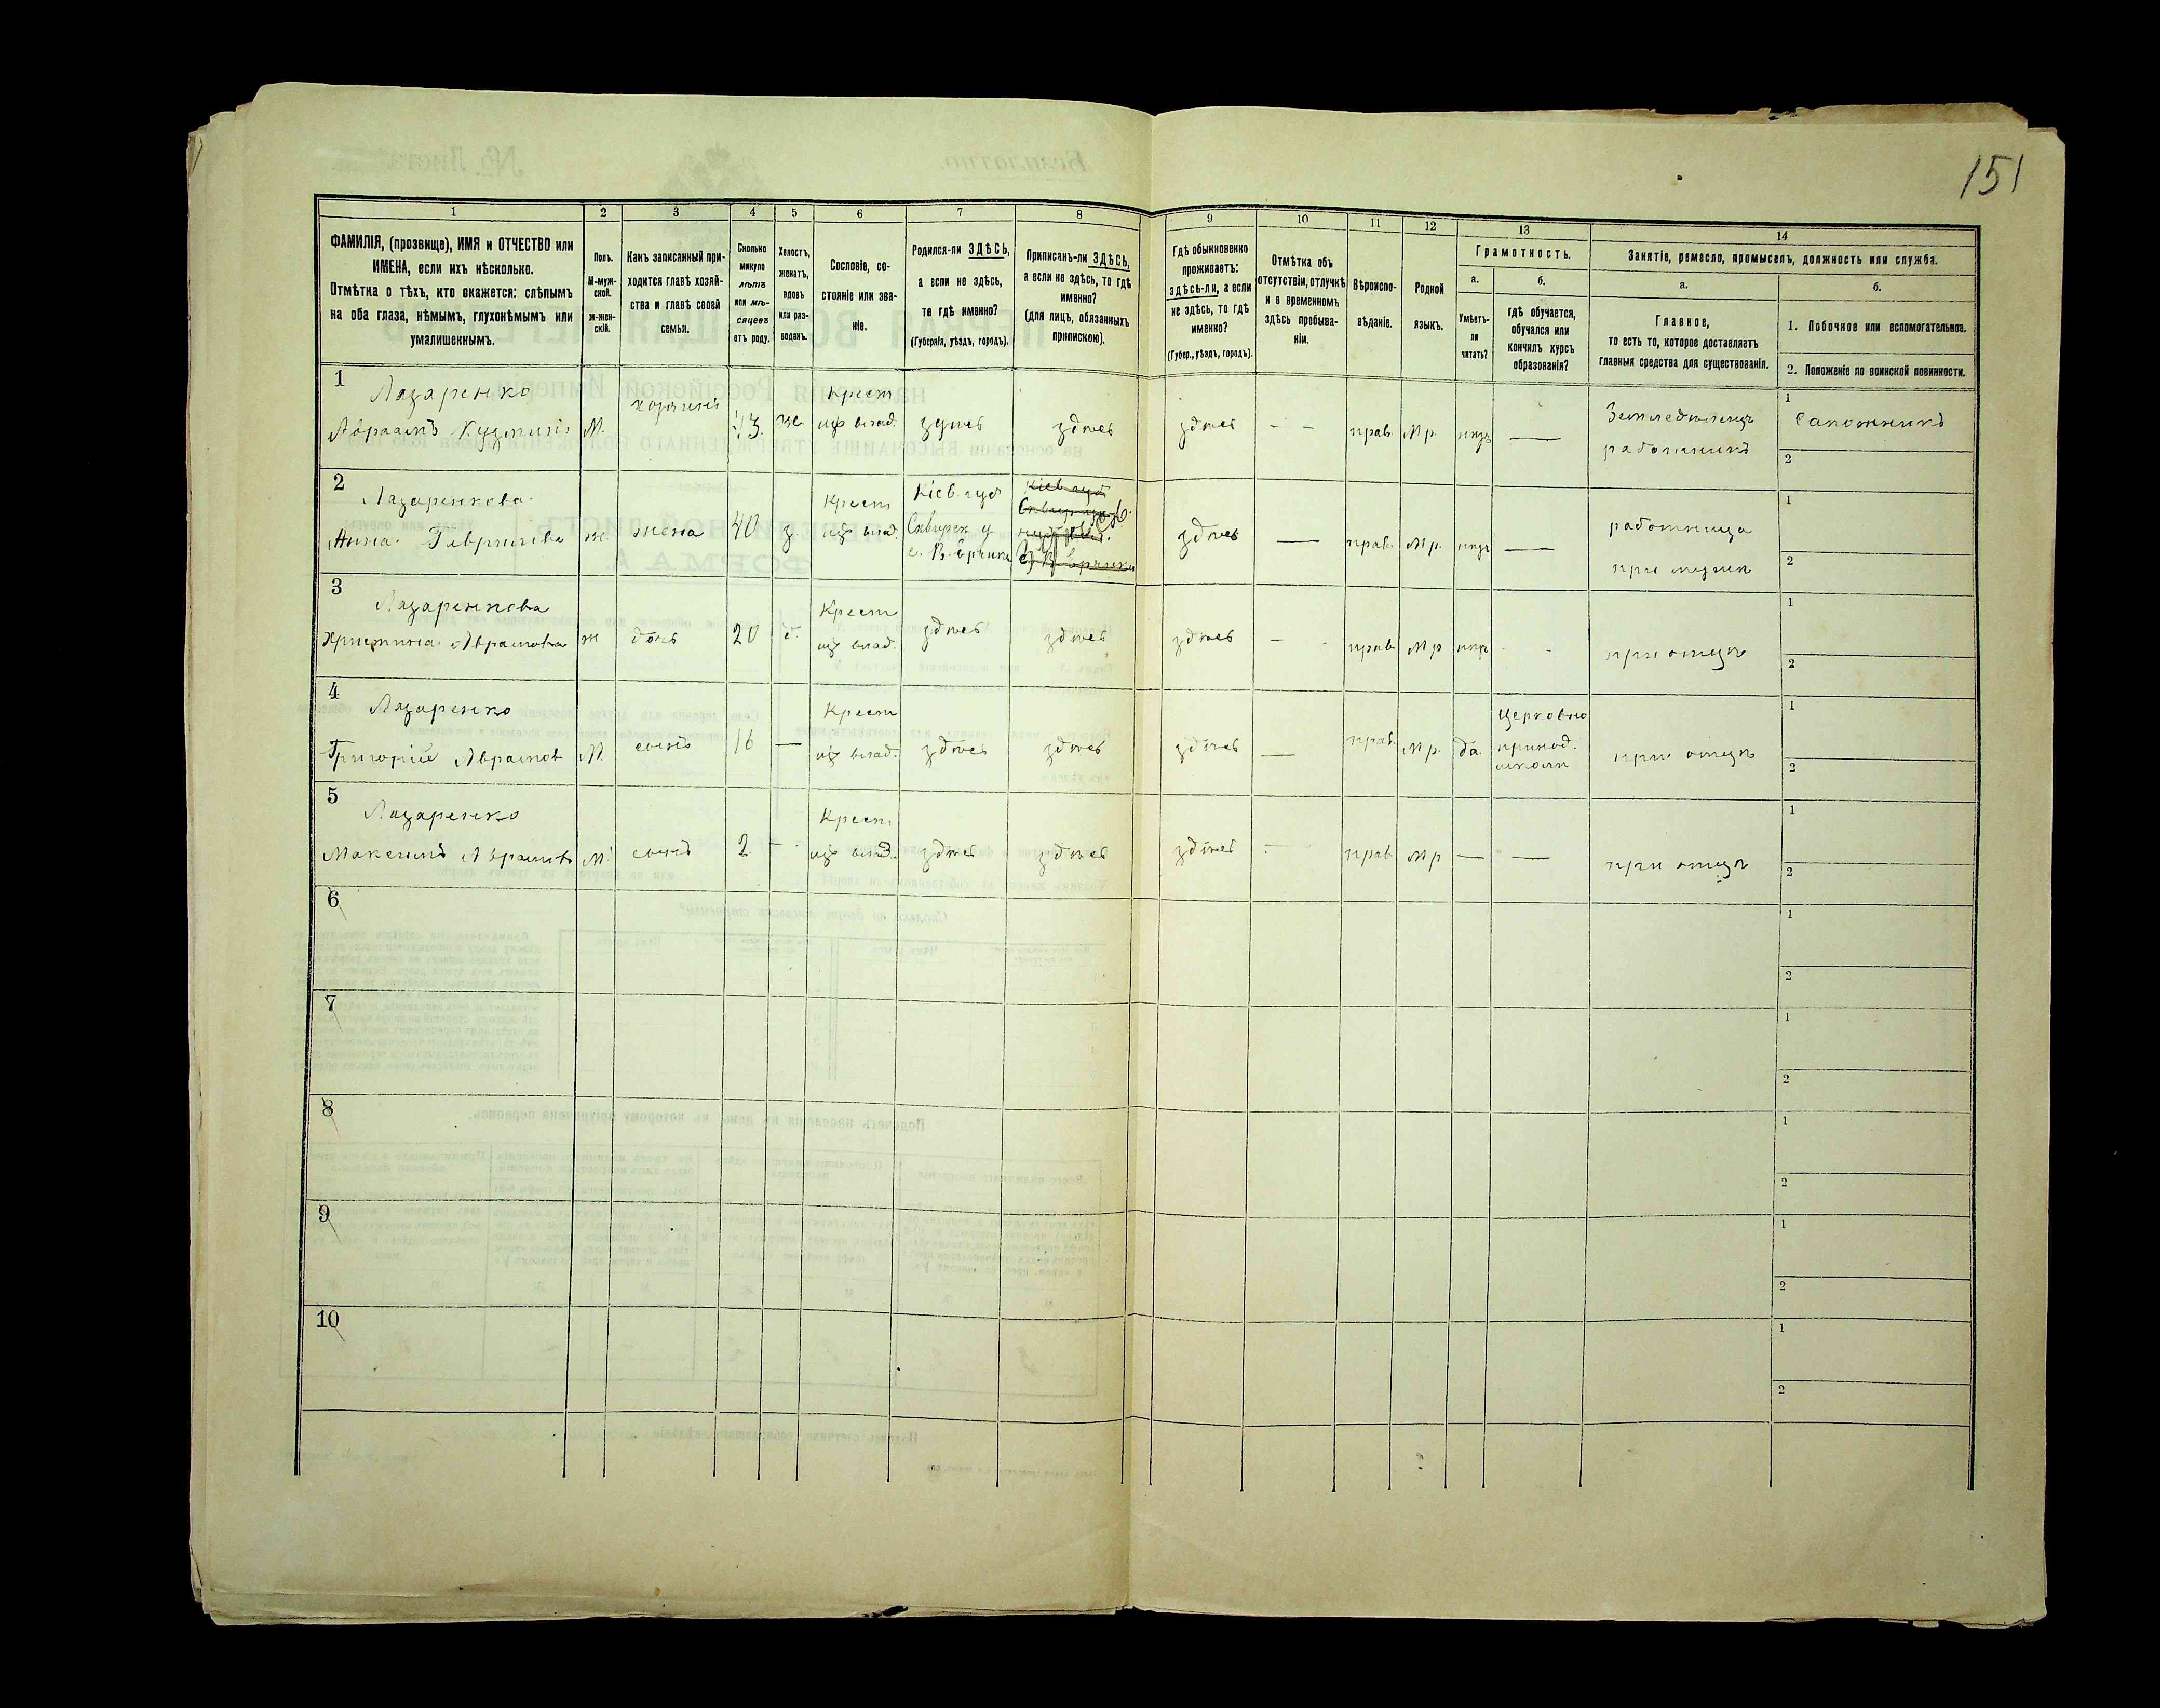 151
1 2 3 4 5 6 7 8 9 10 11 12 13 14
ФАМИЛІЯ, (прозвище), ИМЯ и ОТЧЕСТВО или
ИМЕНА, если ихъ нѣсколько.
Отмѣтка о тѣхъ, кто окажется: слѣпымъ
на оба глаза, нѣмымъ, глухонѣмымъ или
умалишеннымъ.
Полъ.
М-муж-
ской.
ж-жен-
скій.
Какъ записанный при-
ходится главѣ хозяй-
ства и главѣ своей
семьи.
Сколько
минуло
лѣтъ
или мѣ-
сяцевъ
отъ роду.
Холостъ,
женатъ,
вдовъ
или раз-
веденъ.
Сословіе, со-
стояніе или зва-
ніе.
Родился-ли ЗДѢСЬ,
а если не здѣсь,
то гдѣ именно?
(Губернія, уѣздъ, городъ).
Приписанъ-ли ЗДѢСЬ,
а если не здѣсь, то гдѣ
именно?
(для лицъ, обязанныхъ
припискою).
Гдѣ обыкновенно
проживаетъ:
здѣсь-ли, а если
не здѣсь, то гдѣ
именно?
(Губер., уѣздъ, городъ).
Отмѣтка объ
отсутствіи, отлучкѣ
и о временномъ
здѣсь пребыва-
ніи.
Вѣроиспо-
вѣданіе.
Родной
языкъ.
Грамотность.
а.
Умѣетъ-
ли
читать?
б.
гдѣ обучается,
обучался или
кончилъ курсъ
образованія?
Занятіе, ремесло, промыселъ, должность или служба.
а.
Главное,
то есть то, которое доставляетъ
главныя средства для существованія.
б.
1. Побочное или вспомогательное.
2. Положеніе по воинской повинности.
1
Лазаренко
Авраамъ Кузминъ
М.
хозяинъ
43.
же.
Крест
из влад.
здѣсь
здѣсь
здѣсь
— —
прав.
Мр.
нѣтъ
—
Земледѣлецъ
работникъ
1
Сапожникъ
2
2
Лазаренкова
Анна
ж.
жена
40
з.
Крест
из влад.
Кіев. губ
Сквирск у.
здѣсь
—
прав.
Мр.
нѣтъ
—
работница
при мужѣ
1
2
3
Лазаренкова
Христина Аврамова
ж
дочь
20
Крест
из влад.
здѣсь
здѣсь
здѣсь
—
прав.
Мр
нѣтъ
-
при отцѣ
1
2
4
Лазаренко
Григорій Аврамов
М.
сынъ
16
—
Крест
из влад.
здѣсь
здѣсь
здѣсь
—
прав.
Мр.
да
Церковно
приход.
школѣ
при отцѣ
1
2
5
Лазаренко
Максимъ Аврамов
М.
сынъ
2
-
Крест
из влад.
здѣсь
здѣсь
здѣсь
—
прав
Мр
—
—
при отцѣ
1
2
6
1
2
7
1
2
8
1
2
9
1
2
10
1
2